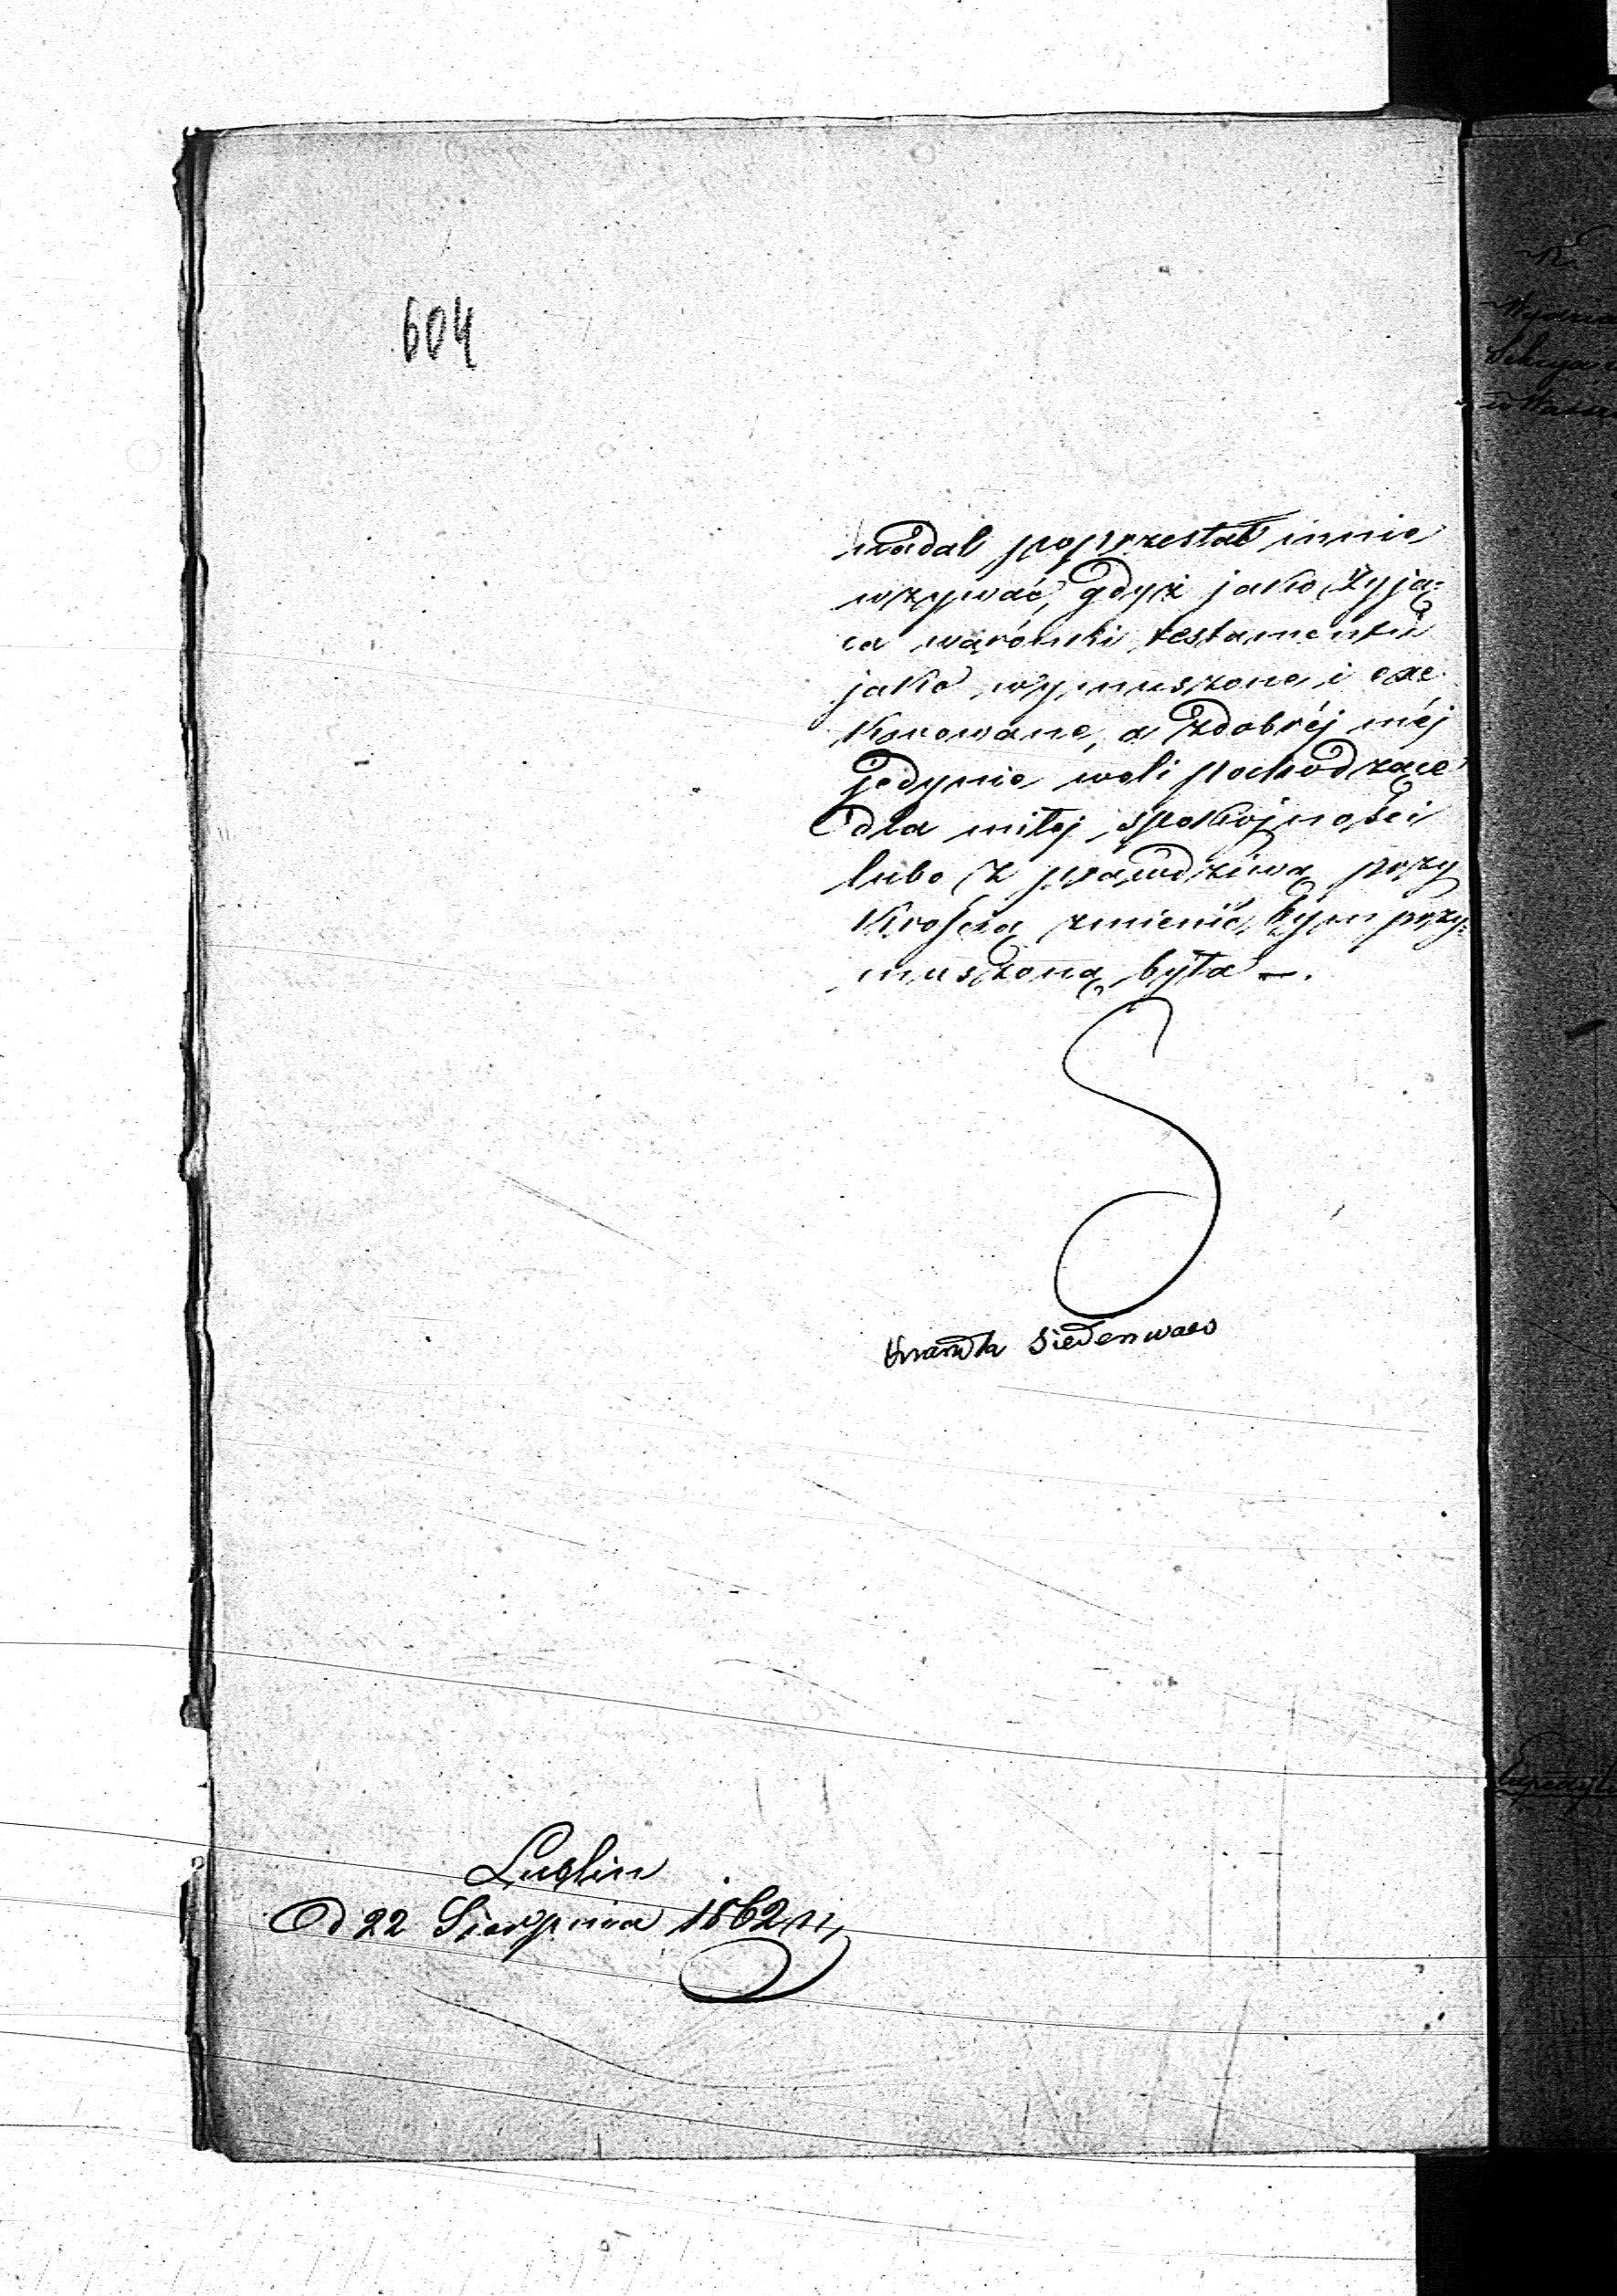 604
nadal poprzestał mnie
wzywać, gdyż jako żyją=
ca warónki testamentu
jako wymuszone i exe
kwowane, a zdobréj méj
jedynie woli pochodzące
dla miłej spokójności
lubo z prawdziwą przy
krością zmienić, tym przy=
muszoną była —.
Siedenwars
Lublin
d 22 Sierpnia 1862 r.